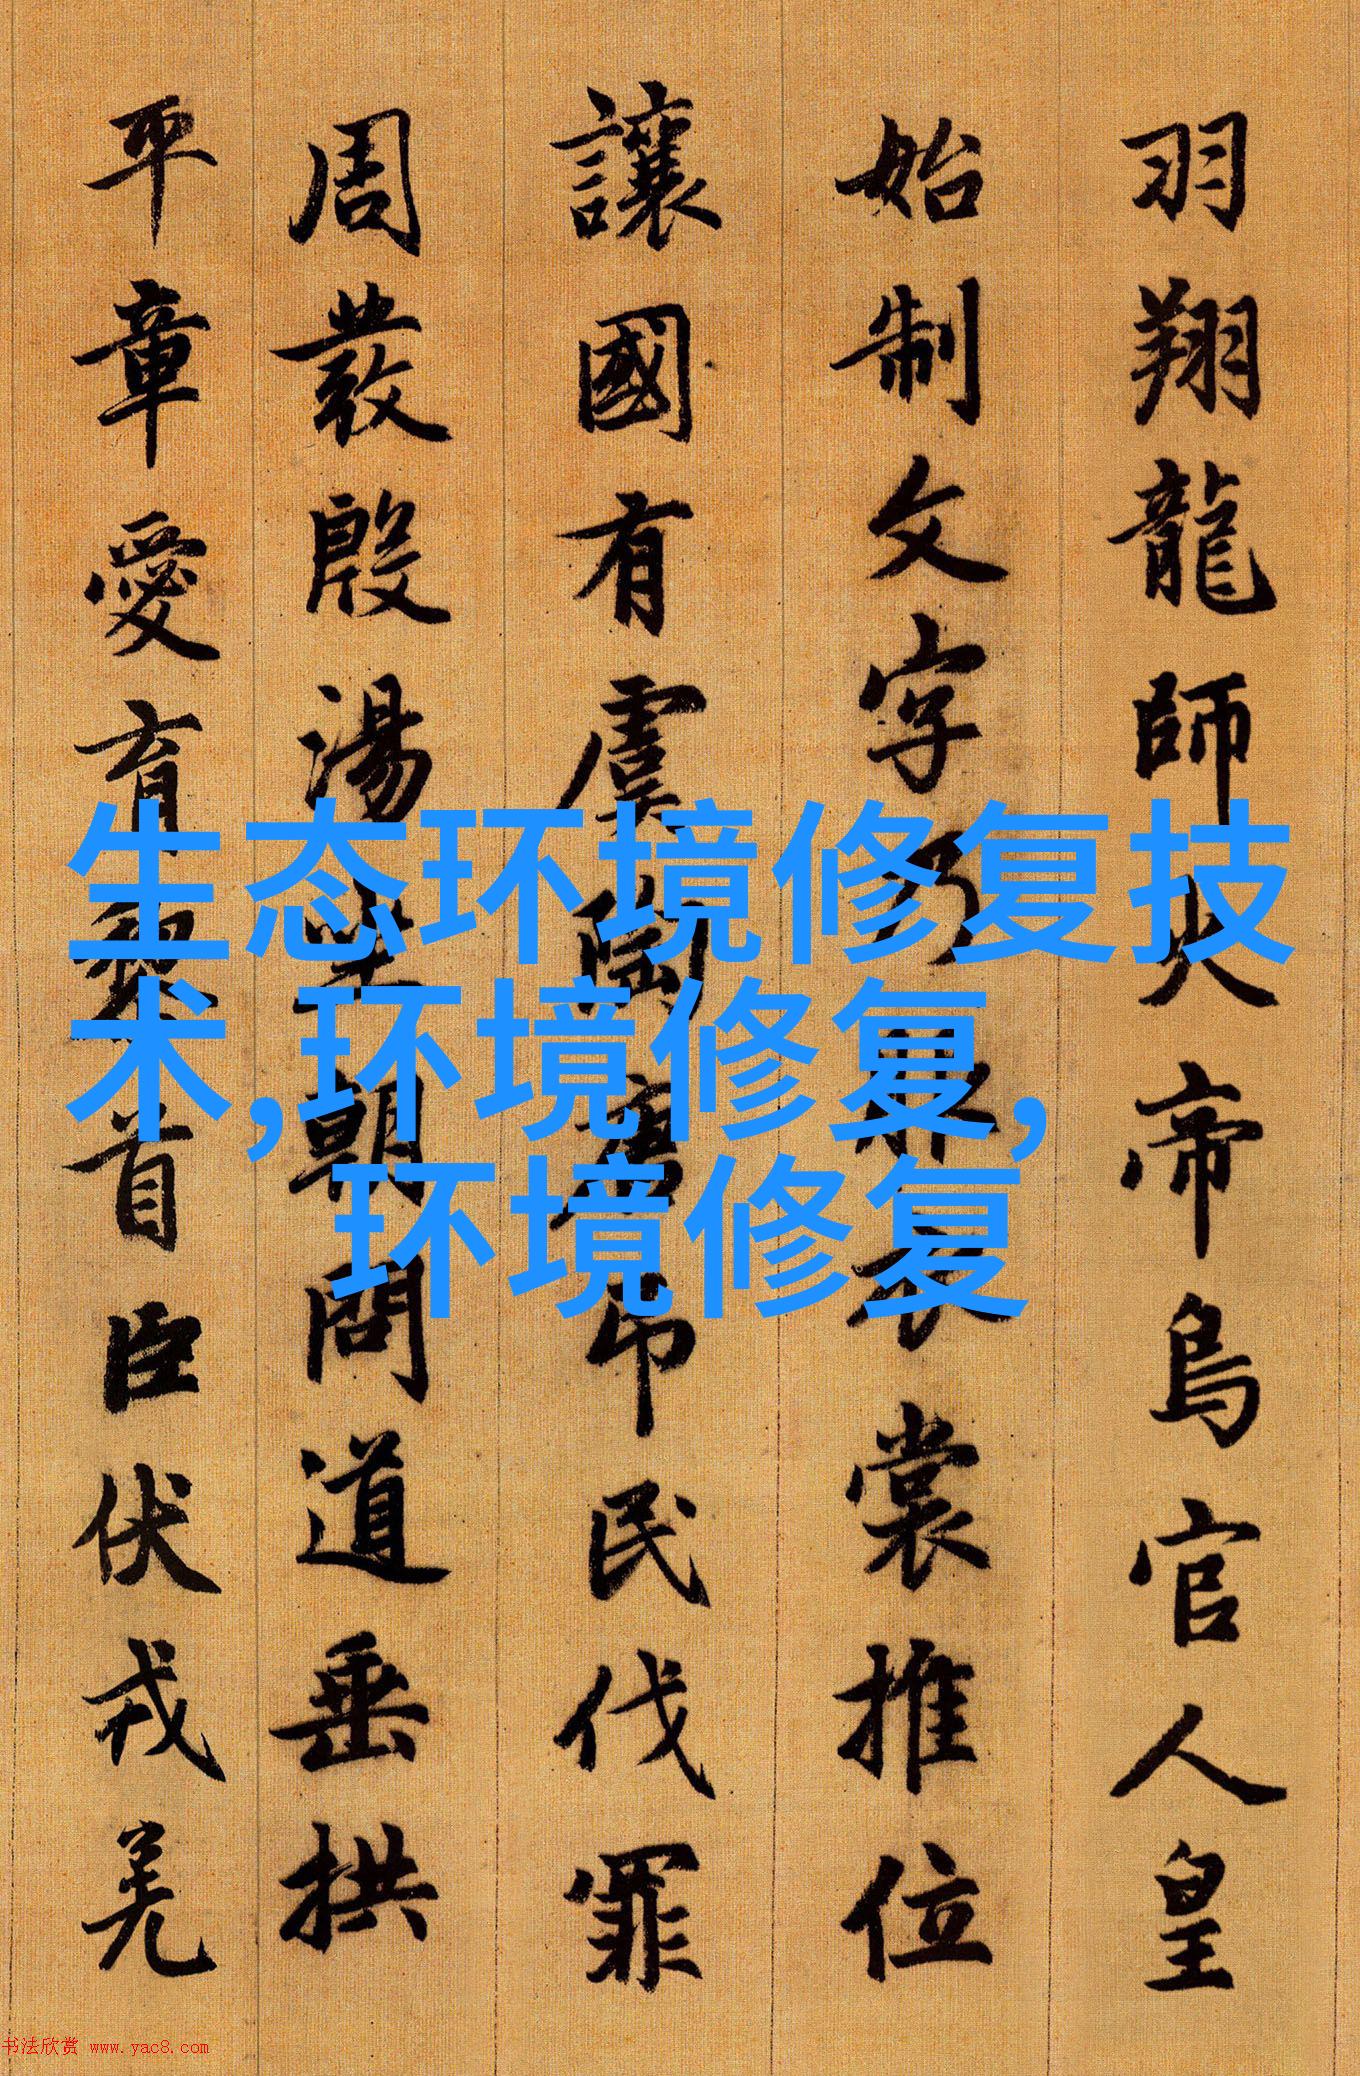 羽翔龍師火帝鳥官人皇
始制文字乃服衣裳推位
讓國有虞陶唐吊民伐罪
周發殷湯坐朝問道垂拱
平章愛育黎首臣伏戎羌
生态环境修复技
术,环境修复,
环境修复
书法欣赏 www.yac8.com